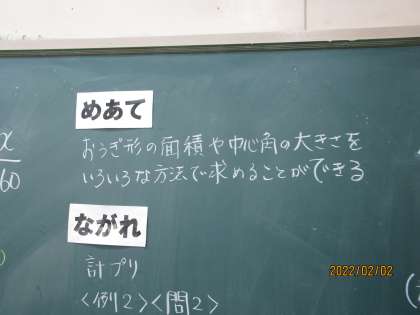 めあて
おうぎ形の面積や中心角の大きさを
いろいろな方法で求めることができる
x
60
ながれ
計プリ
<例2><問2>
2022/02/02